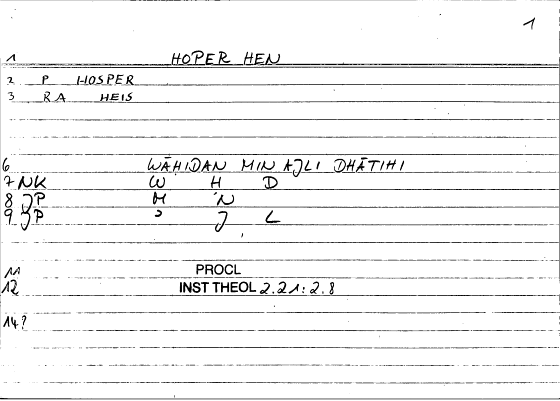 1
1 HOPER HEN
2 P HOSPER
3 RA HEIS
6 WĀHIDAN MIN AJLI DHĀTIHI
7 NK W H D
8 JP M N
9 JP ʾ J L
11 PROCL
12 INST THEOL 2.21:2.8
14?